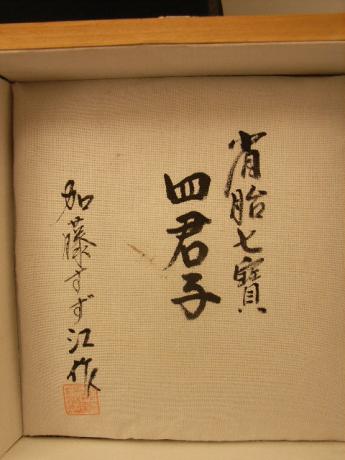 省胎七寶
四君子
加藤すず江作